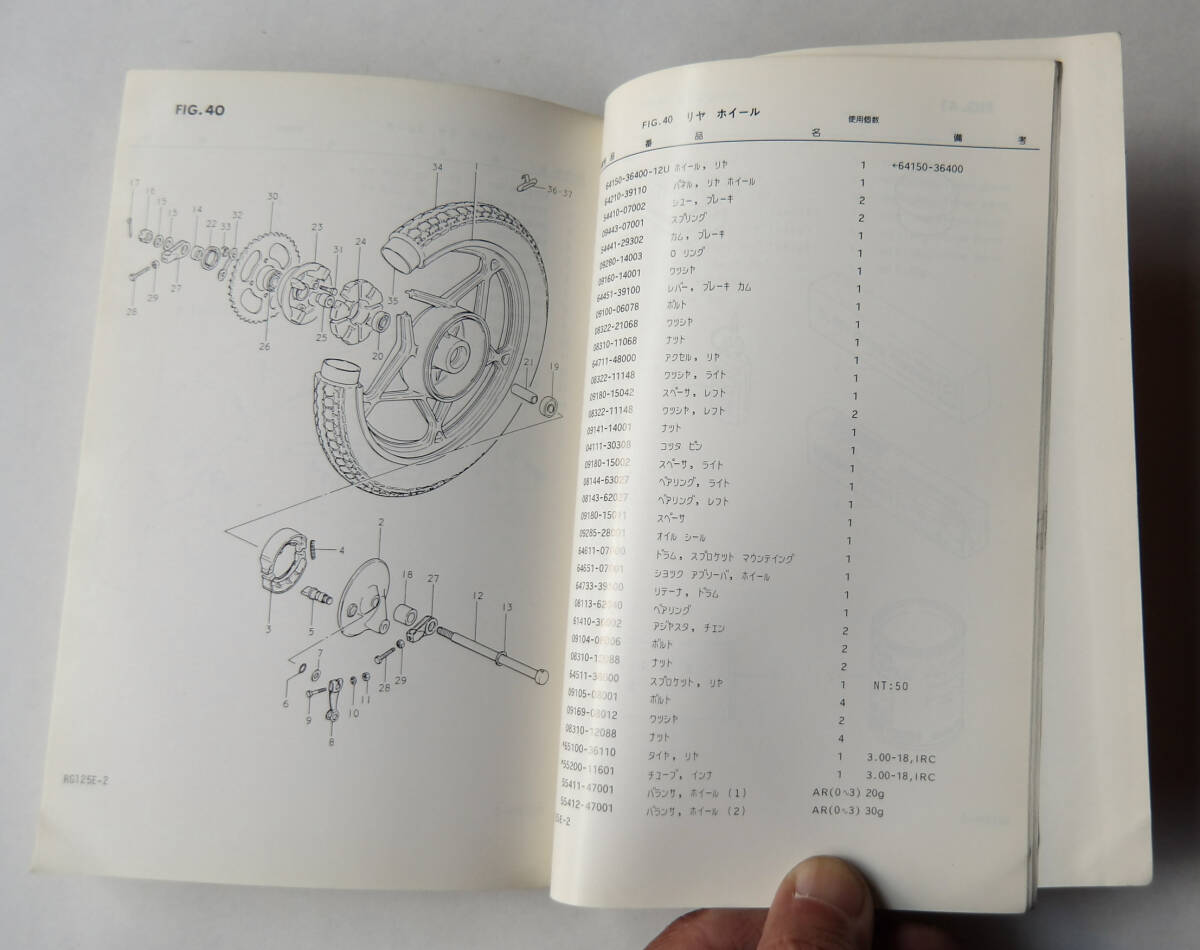 FIG. 40
34
1
36-37
17
16
15
13
14
22
33
32
30
23
31
24
28
29
27
26
25
35
20
21
19
2
4
18
27
12
13
3
5
7
6
9
8
10
11
28
29
RG125E-2
FIG. 40 リヤ ホイール
番 品 名 使用個数 備 考
64150-36400-12U ホイール, リヤ 1 ←64150-36400
64210-39110 パネル, リヤ ホイール 1
54410-07002 シュー, ブレーキ 2
09443-07001 スプリング 2
54441-29302 カム, ブレーキ 1
09280-14003 O リング 1
09160-14001 ワツシヤ 1
64451-39100 レバー, ブレーキ カム 1
09100-06078 ボルト 1
08322-21068 ワツシヤ 1
08310-11068 ナット 1
64711-48000 アクセル, リヤ 1
08322-11148 ワツシヤ, ライト 1
09180-15042 スペーサ, レフト 1
08322-11148 ワツシヤ, レフト 2
09141-14001 ナット 1
04111-30308 コツタ ピン 1
09180-15002 スペーサ, ライト 1
08144-63027 ベアリング, ライト 1
08143-62027 ベアリング, レフト 1
09180-15011 スペーサ 1
09285-28001 オイル シール 1
64611-07000 ドラム, スプロケット マウンテイング 1
64651-07001 シヨツク アブソーバ, ホイール 1
64733-39300 リテーナ, ドラム 1
08113-62040 ベアリング 1
61410-36002 アジヤスタ, チエン 2
09104-06006 ボルト 2
08310-12088 ナット 2
64511-36600 スプロケット, リヤ 1 NT:50
09105-08001 ボルト 4
09169-08012 ワツシヤ 2
08310-12088 ナット 4
*65100-36110 タイヤ, リヤ 1 3.00-18,IRC
*55200-11601 チューブ, インナ 1 3.00-18,IRC
55411-47001 バランサ, ホイール (1) AR(0∿3) 20g
55412-47001 バランサ, ホイール (2) AR(0∿3) 30g
5E-2